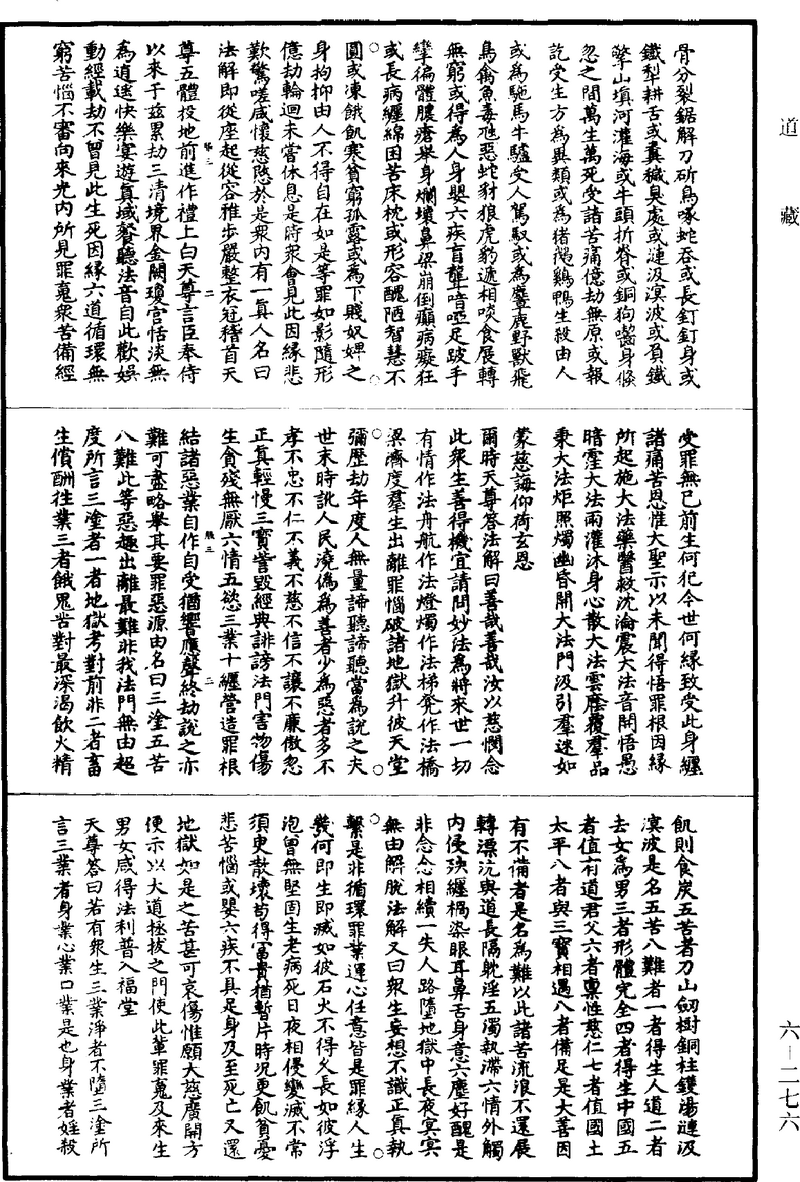 道藏
骨分裂鋸解刀斫鳥啄蛇吞或長釘釘身或
鐵犁耕舌或糞穢臭處或漣汲溟波或負鐵
擎山填河灌海或牛頭折脊或銅狗嚙身倏
忽之間萬生萬死受諸苦痛億劫無原或報
訖受生方為異類或為猪鵝鷄鴨生殺由人
或為駞馬牛驢受人駕馭或為麞鹿野獸飛
鳥禽魚毒虺惡蛇豺狼虎豹遞相啖食展轉
無窮或得為人身嬰六疾盲聾喑啞足跛手
攣徧體膿瘡舉身爛壞鼻梁崩倒癲病癡狂
或長病纏綿困苦床枕或形容醜陋智慧不
圓或凍餓飢寒貧窮孤露或為下賤奴婢之
身拘抑由人不得自在如是等罪如影隨形
億劫輪迴未嘗休息是時衆會見此因緣悲
歎驚嗟咸懷慈愍於是衆內有一真人名曰
法解即從座起從容雅步嚴整衣冠稽首天
尊五體投地前進作禮上白天尊言臣奉侍
以來于兹累劫三清境界金闕瓊宫恬淡無
為逍遥快樂宴遊真域飡聽法音自此歡娛
動經載劫不曾見此生死因緣六道循環無
窮苦惱不審向來光内所見罪䰟衆苦備經
受罪無已前生何犯今世何緣致受此身纏
諸痛苦恩惟大聖示以未聞得悟罪根因緣
所起施大法藥醫救沈淪震大法音開悟愚
暗霔大法雨灌沐身心散大法雲䕃覆羣品
秉大法炬照燭幽昏開大法門汲引羣迷如
蒙慈誨仰荷玄恩
爾時天尊答法解曰善哉善哉汝以慈憫念
此衆生善得機宜請問妙法為將來世一切
有情作法舟航作法燈燭作法梯凳作法橋
梁濟度羣生出離罪惱破諸地獄升彼天堂
彌歷劫年度人無量諦聽諦聽當為說之夫
世末時訛人民澆偽為善者少為惡者多不
孝不忠不仁不義不慈不信不讓不廉傲忽
正真輕慢三寶訾毁經典誹謗法門害物傷
生貪殘無厭六情五慾三業十纏營造罪根
結諸惡業自作自受猶響應聲終劫說之亦
難可盡略舉其要罪惡源由名曰三塗五苦
八難此等惡趣出離最難非我法門無由超
度所言三塗者一者地獄考對前非二者畜
生償酬往業三者餓鬼苦對最深渴飲火精
飢則食炭五苦者刀山劒樹銅柱鑊湯漣汲
溟波是名五苦八難者一者得生人道二者
去女為男三者形體完全四者得生中國五
者值有道君父六者禀性慈仁七者值國土
太平八者與三寶相遇八者備足是大善因
有不備者是名為難以此諸苦流浪不還展
轉漂沉與道長隔躭淫五濁執滯六情外觸
内侵殃纏禍染眼耳鼻舌身意六塵好醜是
非念念相續一失人路墮地獄中長夜冥冥
無由解脫法解又曰衆生妄想不識正真執
繫是非循環罪業運心任意皆是罪緣人生
幾何即生即滅如彼石火不得久長如彼浮
泡曾無堅固生老病死日夜相侵變滅不常
須臾散壞苟得富貴猶暫片時況更飢貧憂
悲苦惱或嬰六疾不具足身及至死亡又還
地獄如是之苦甚可哀傷惟願大慈廣開方
便示以大道拯拔之門使此輩罪䰟及來生
男女咸得法利普入福堂
天尊答曰若有衆生三業淨者不墮三塗所
言三業者身業心業口業是也身業者婬殺
六-二七六